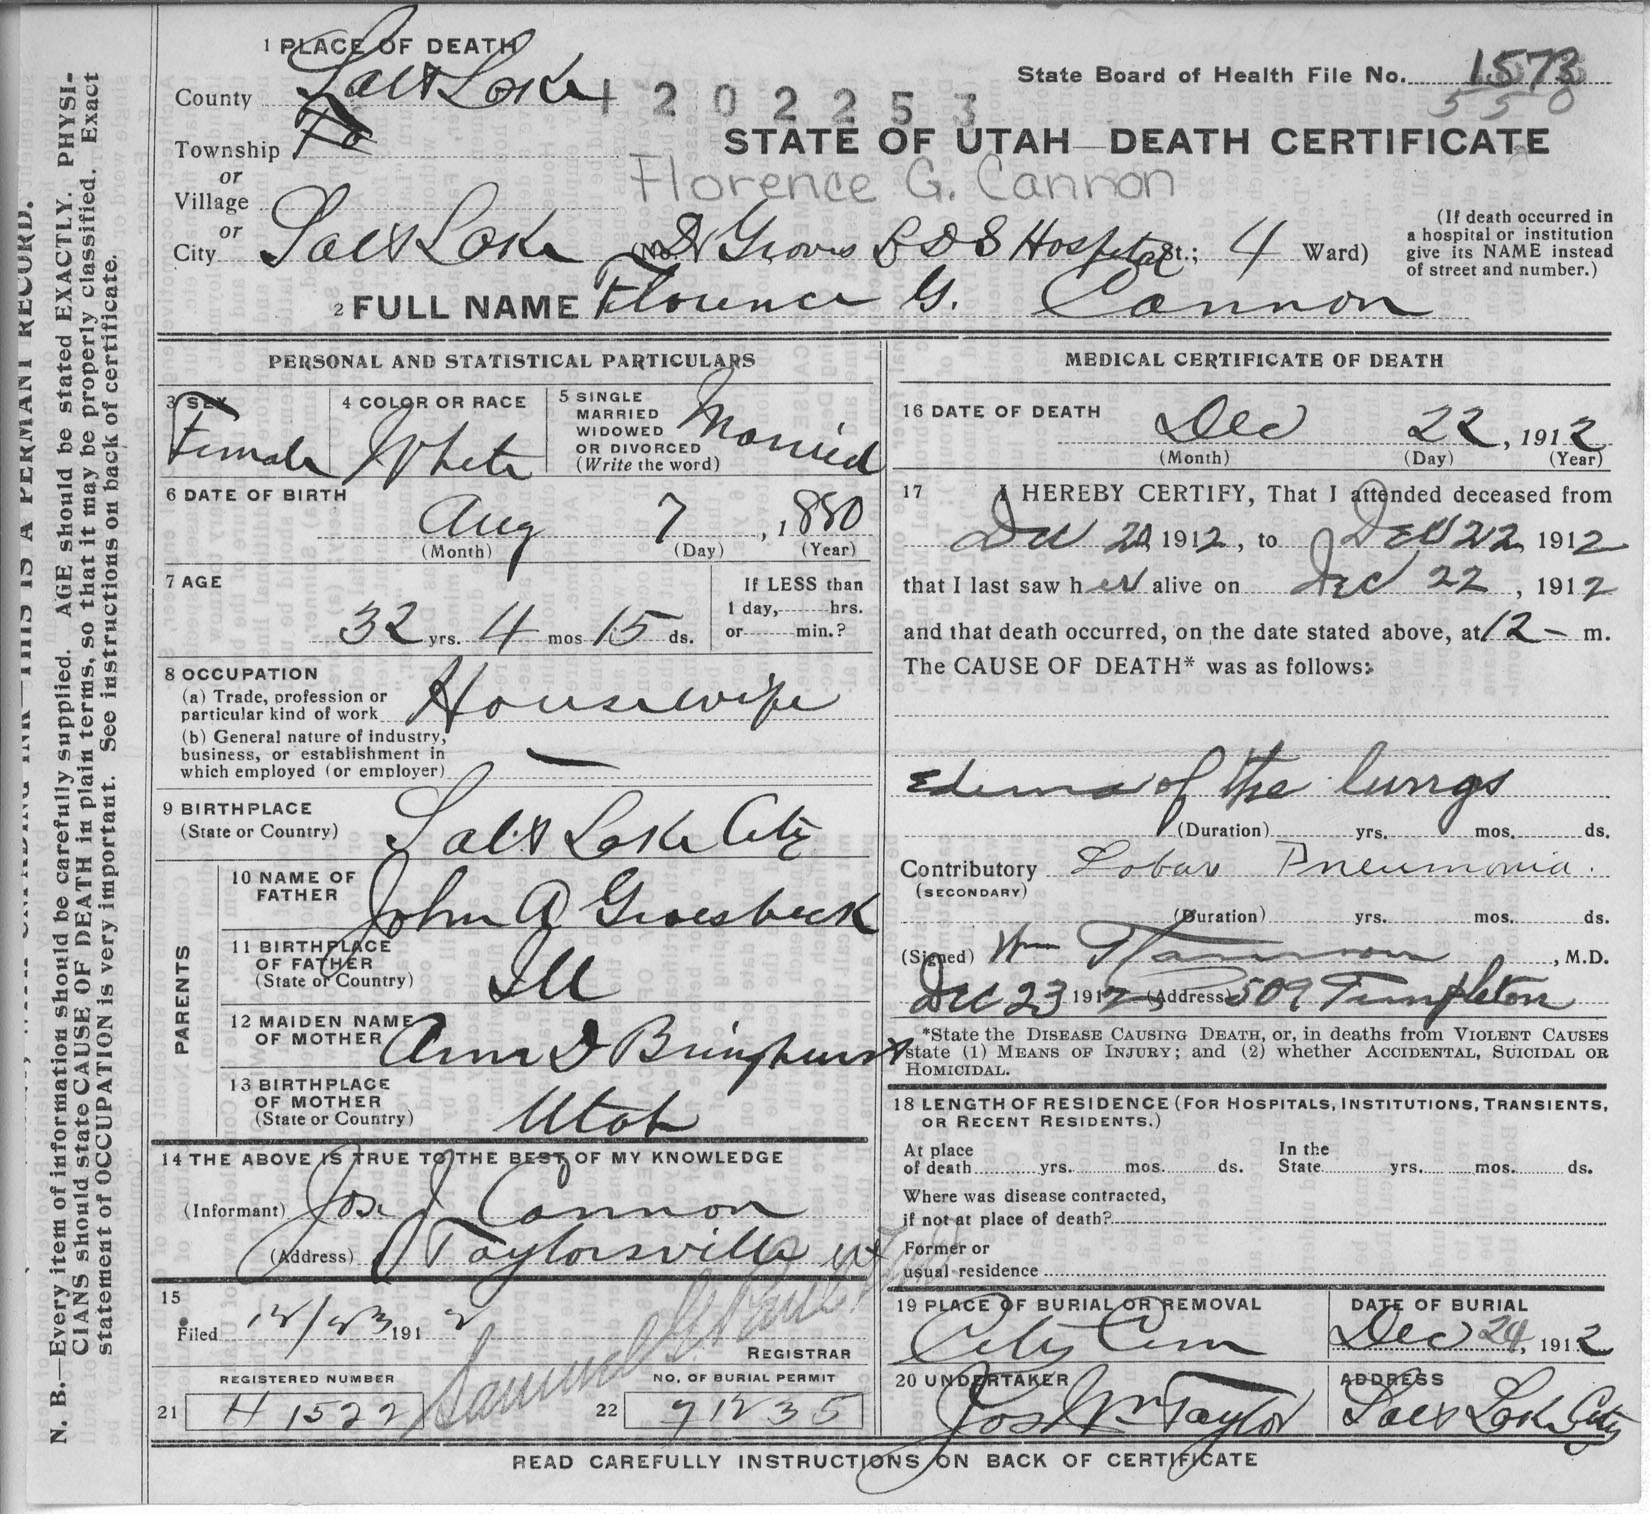 1 PLACE OF DEATH
State Board of Health File No. 1573
550
County Salt Lake
1202253
Township
STATE OF UTAH—DEATH CERTIFICATE
or
Village
Florence G. Cannon
or
City Salt Lake (No. Dr Groves L D S Hospital St.; 4 Ward)
(If death occurred in a hospital or institution give its NAME instead of street and number.)
2 FULL NAME Florence G. Cannon
PERSONAL AND STATISTICAL PARTICULARS
3 SEX Female
4 COLOR OR RACE White
5 SINGLE
MARRIED
WIDOWED
OR DIVORCED
(Write the word) Married
6 DATE OF BIRTH
Aug 7, 1880
(Month) (Day) (Year)
7 AGE
32 yrs. 4 mos 15 ds.
If LESS than
1 day, hrs.
or min.?
8 OCCUPATION
(a) Trade, profession or
particular kind of work Housewife
(b) General nature of industry,
business, or establishment in
which employed (or employer) —
9 BIRTHPLACE
(State or Country) Salt Lake City
PARENTS
10 NAME OF
FATHER John A Groesbeck
11 BIRTHPLACE
OF FATHER
(State or Country) Ill
12 MAIDEN NAME
OF MOTHER Ann D Bringhurst
13 BIRTHPLACE
OF MOTHER
(State or Country) Utah
14 THE ABOVE IS TRUE TO THE BEST OF MY KNOWLEDGE
(Informant) Jos. J Cannon
(Address) Taylorsville Ut
15
Filed 12/23 1912
REGISTRAR
REGISTERED NUMBER
21 H 1522
NO. OF BURIAL PERMIT
22 91235
MEDICAL CERTIFICATE OF DEATH
16 DATE OF DEATH
Dec 22, 1912
(Month) (Day) (Year)
17 I HEREBY CERTIFY, That I attended deceased from
Dec 1912, to Dec 22 1912
that I last saw her alive on Dec 22, 1912
and that death occurred, on the date stated above, at 12– m.
The CAUSE OF DEATH* was as follows:
Edema of the lungs
(Duration) yrs. mos. ds.
Contributory Lobar Pneumonia.
(SECONDARY)
(Duration) yrs. mos. ds.
(Signed) Wm, M.D.
Dec 23 1912 (Address) 509 Templeton
*State the DISEASE CAUSING DEATH, or, in deaths from VIOLENT CAUSES
state (1) MEANS OF INJURY; and (2) whether ACCIDENTAL, SUICIDAL OR
HOMICIDAL.
18 LENGTH OF RESIDENCE (FOR HOSPITALS, INSTITUTIONS, TRANSIENTS,
OR RECENT RESIDENTS.)
At place
of death yrs. mos. ds.
In the
State yrs. mos. ds.
Where was disease contracted,
if not at place of death?
Former or
usual residence
19 PLACE OF BURIAL OR REMOVAL
City Cem
DATE OF BURIAL
Dec 24, 1912
20 UNDERTAKER
Jos Wm Taylor
ADDRESS
Salt Lake City
READ CAREFULLY INSTRUCTIONS ON BACK OF CERTIFICATE
THIS IS A PERMANT RECORD.
N. B.—Every item of information should be carefully supplied. AGE should be stated EXACTLY. PHYSI-
CIANS should state CAUSE OF DEATH in plain terms, so that it may be properly classified. Exact
statement of OCCUPATION is very important. See instructions on back of certificate.